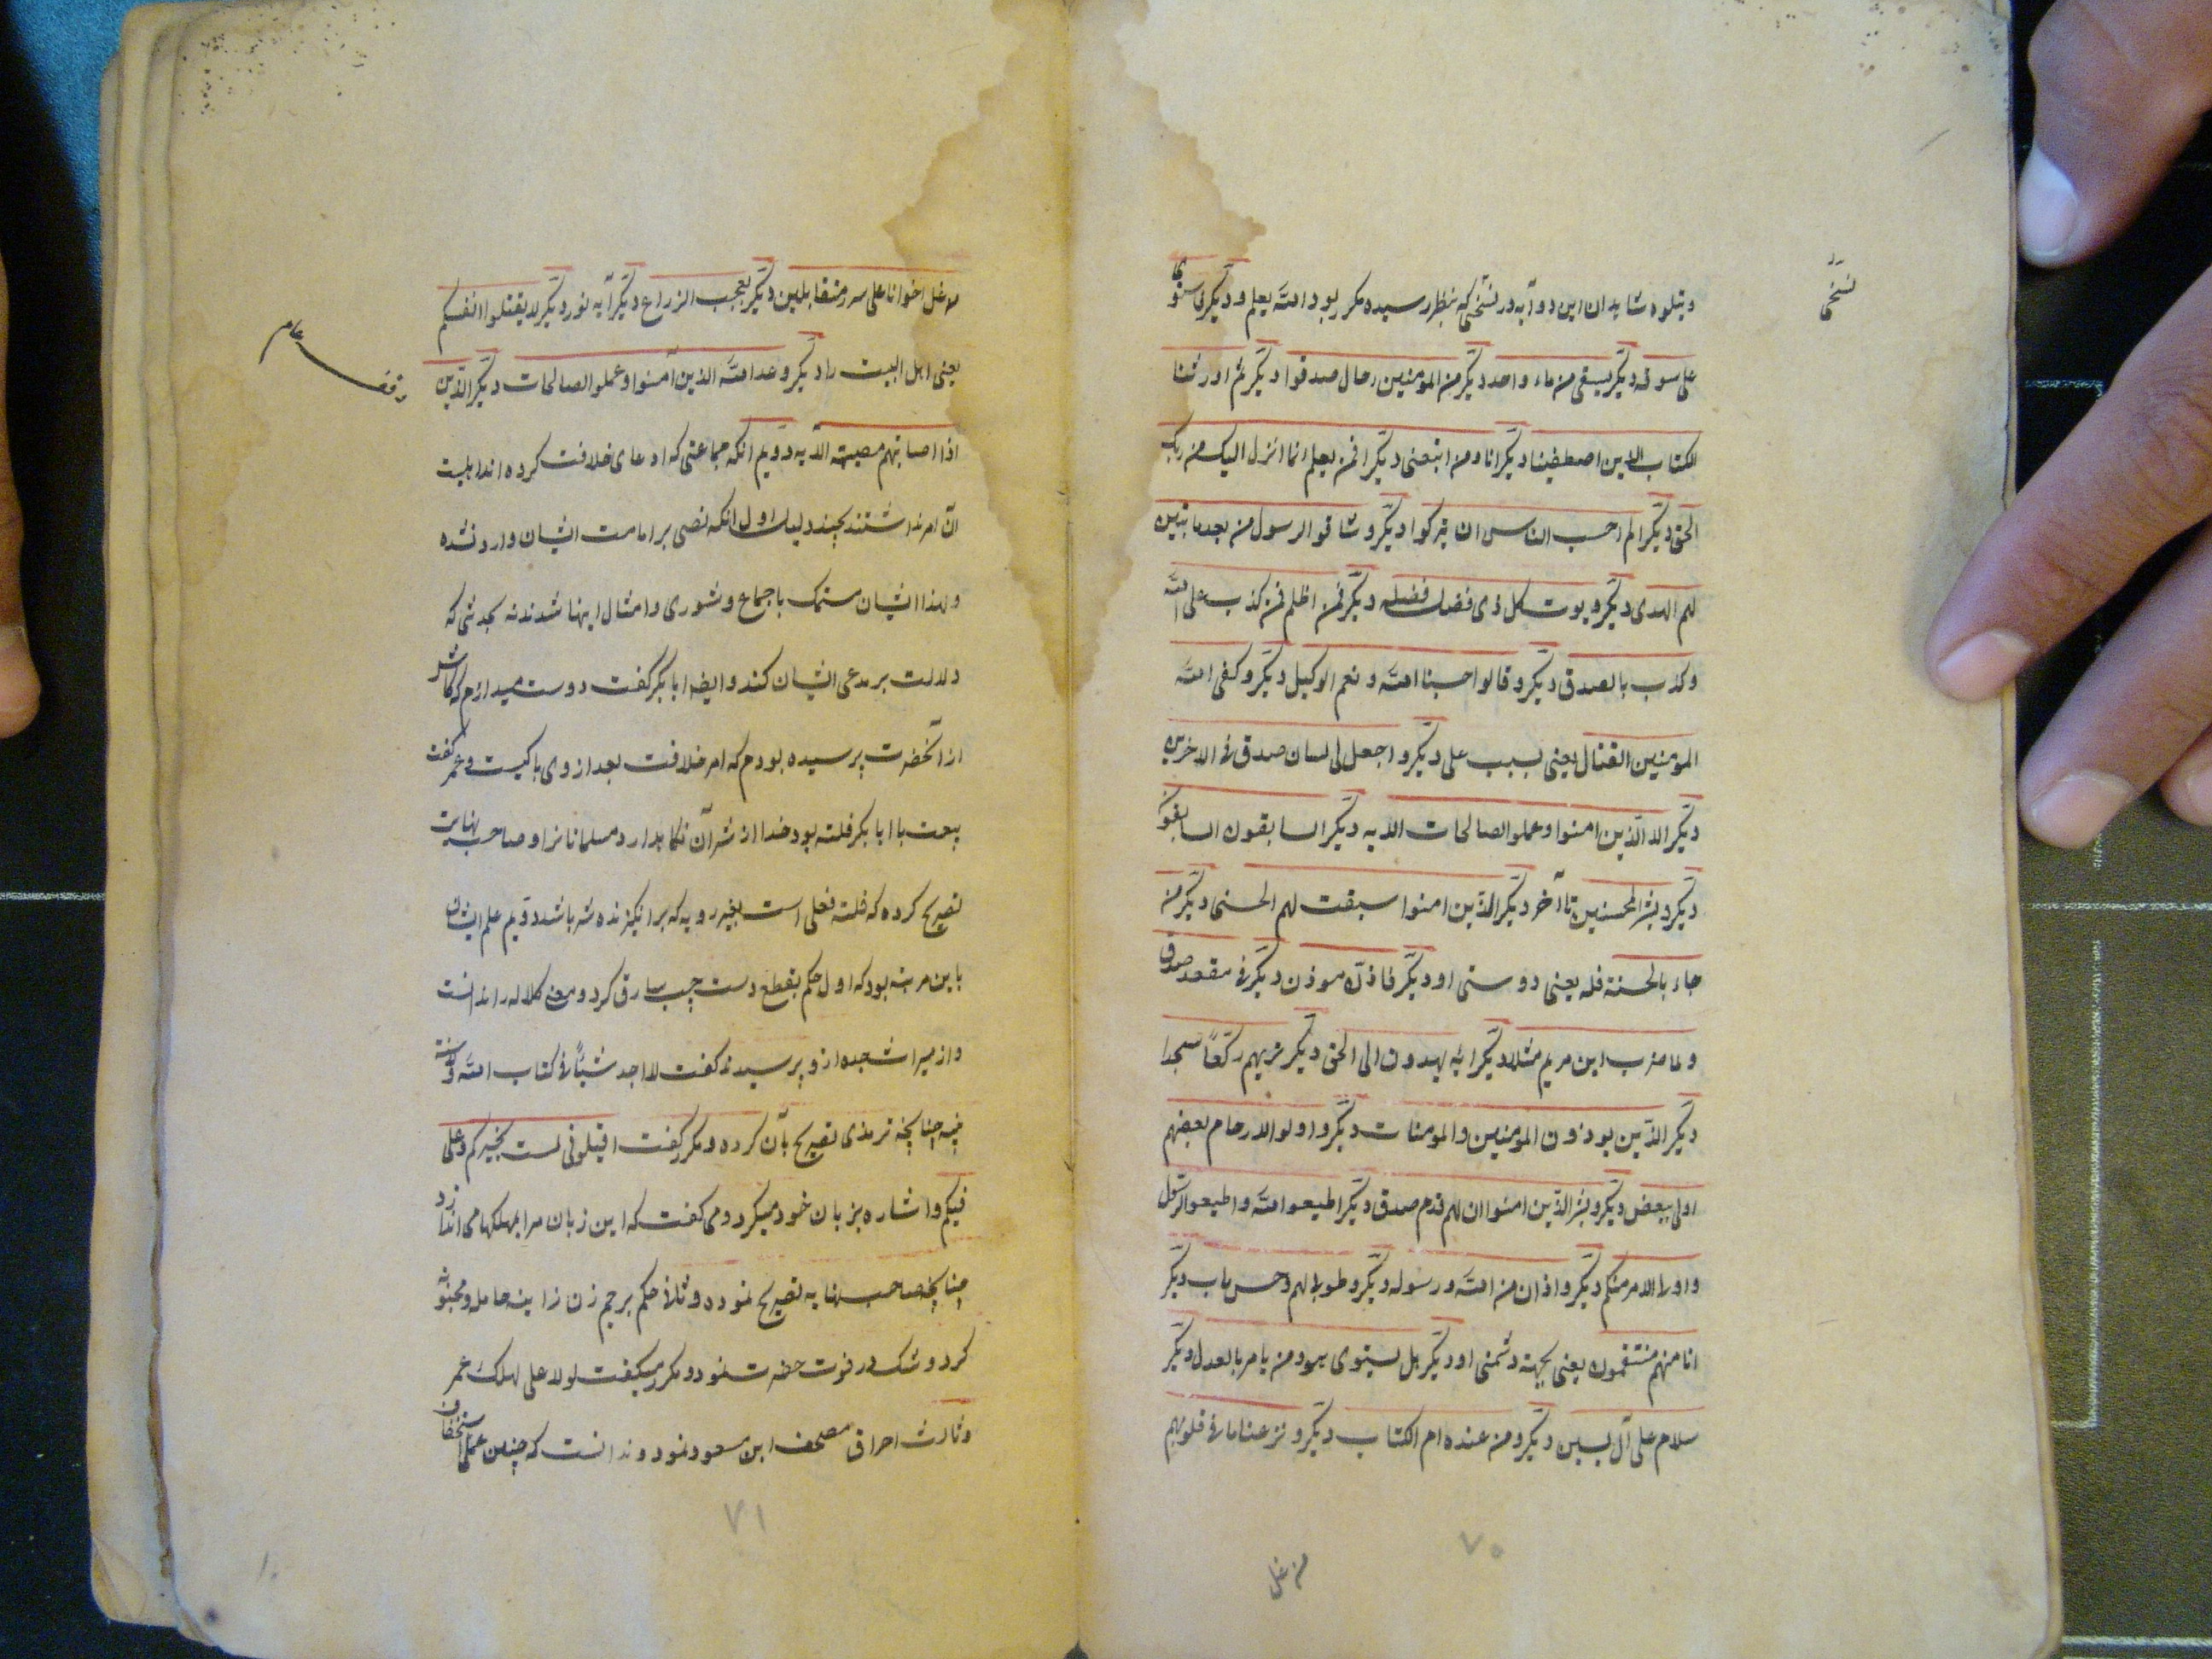 ویتلوه شاهد ان این دو آیه در نسختی که بنظر رسیده مکرر بود الله یعلم و دیگر فاستوی
نسختی
علی سوقه دیگر یسقی من ماء واحد دیگر من المومنین رجال صدقوا دیگر ثم اورثنا
الکتاب الذین اصطفینا دیگر انا ومن اتبعنی دیگر افمن یعلم انما انزل الیک من ربک
الحق دیگر الم احسب الناس ان یترکوا دیگر وشاقوا الرسول من بعد ما تبین
لهم الهدی دیگر ویوت کل ذی فضل فضله دیگر فمن اظلم فمن کذب علی الله
وکذب بالصدق دیگر وقالوا حسبنا الله ونعم الوکیل دیگر وکفی الله
المومنین القتال یعنی بسبب علی دیگر واجعل لی لسان صدق فی الاخرین
دیگر الا الذین امنوا وعملوا الصالحات الایه دیگر السابقون السابقون
دیگر وبشر المحسنین تا آخر دیگر الذین امنوا سبقت لهم الحسنی دیگر من
جاء بالحسنة فله یعنی دوستی او دیگر فاذن موذن دیگر فی مقعد صدق
ولما ضرب ابن مریم مثلا دیگر ائه یهدون الی الحق دیگر تریهم رکعاً سجدا
دیگر الذین یوذون المومنین والمومنات دیگر واولو الارحام بعضهم
اولی ببعض دیگر وبشر الذین امنوا ان لهم قدم صدق دیگر اطیعوا الله واطیعوا الرسول
واولی الامر منکم دیگر واذان من الله ورسوله دیگر وطوبی لهم وحسن ماب دیگر
انا منهم منتقمون یعنی بجهة دشمنی او دیگر هل یستوی هو ومن یامر بالعدل دیگر
سلام علی آل یسین دیگر ومن عنده ام الکتاب دیگر ونزعنا ما فی قلوبهم
۷۰
من غل
من غل اخوانا علی سرر متقابلین دیگر یعجب الزراع دیگر آیه نور دیگر لا یقتلوا انفسکم
یعنی اهل البیت را دیگر وعد الله الذین آمنوا وعملوا الصالحات دیگر الذین
اذا اصابتهم مصیبة الآیه دویم آنکه جماعتی که ادعای خلافت کرده اند اهلیت
آن امر نداشتند بچند دلیل اول آنکه نصی بر امامت ایشان وارد نشده
ولهذا ایشان متمسک باجماع وشوری وامثال اینها شدند نه بحدیثی که
دلالت بر مدعی ایشان کند وایضا ابابکر گفت دوست میدارم که کاش
از آنحضرت پرسیده بودم که امر خلافت بعد از وی با کیست وعمر گفت
بیعت با ابابکر فلته بود خدا از شر آن نگاهدارد مسلمانانرا وصاحب نهایت
تصریح کرده که فلته فعلی است بغیر رویه که برانگیزنده شر باشد دویم علم ایشان
باین مرتبه بود که اول حکم بقطع دست چپ سارق کرد ومعنی کلاله را ندانست
واز میراث جده از و پرسیدند گفت لا اجد شیئاً فی کتاب الله وسنة
نبیه چنانچه ترمذی تصریح بآن کرده ومکرر گفت اقیلونی لست بخیرکم وعلی
فیکم واشاره بزبان خود میکرد ومی گفت که این زبان مرا بمهلکها می اندازد
چنانچه صاحب نهایه تصریح نموده وثانی حکم برجم زن زانیه حامله ومجنونه
کرد وشک در فوت حضرت نمود ومکرر میگفت لولا علی لهلک عمر
وثالث احراق مصحف ابن مسعود نمود وندانست که چنین عمل استخفاف
۷۱